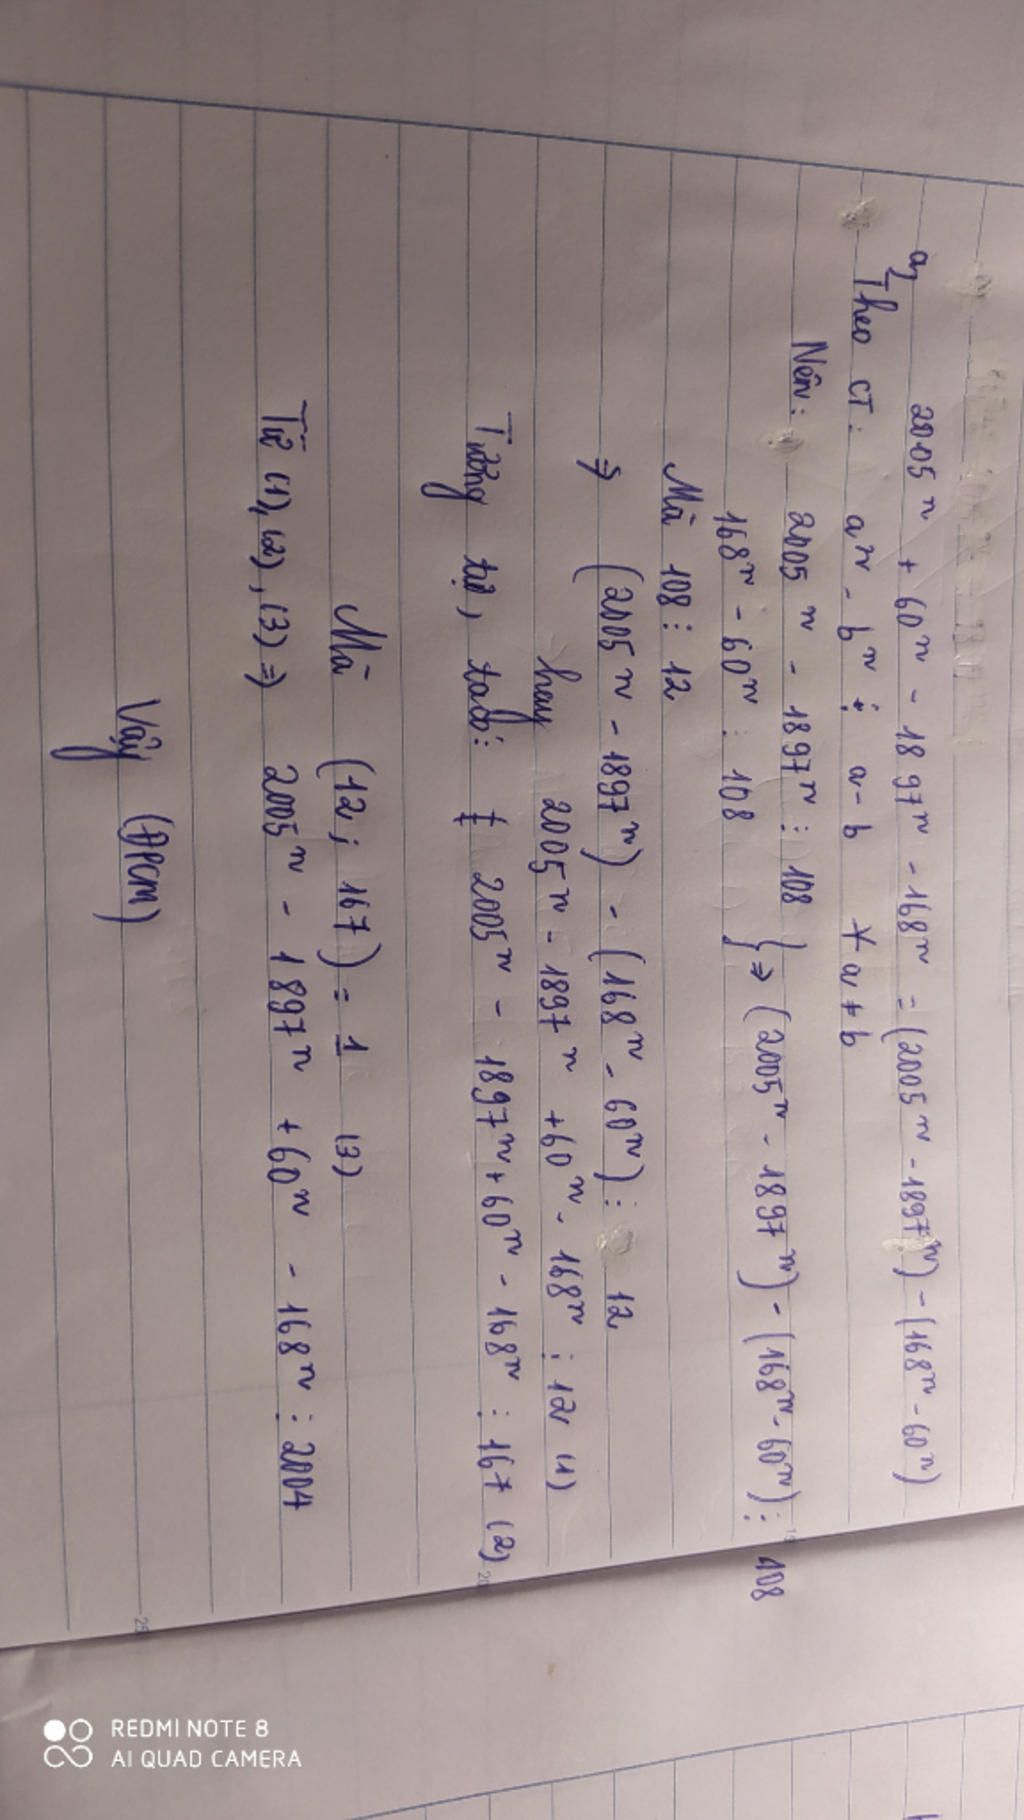 a, 2005ⁿ + 60ⁿ - 1897ⁿ - 168ⁿ = (2005ⁿ - 1897ⁿ) - (168ⁿ - 60ⁿ)
Theo CT: aⁿ - bⁿ ⋮ a - b ∀ a ≠ b
Nên: 2005ⁿ - 1897ⁿ ⋮ 108
168ⁿ - 60ⁿ ⋮ 108 } ⇒ (2005ⁿ - 1897ⁿ) - (168ⁿ - 60ⁿ) ⋮ 108
Mà 108 ⋮ 12
⇒ (2005ⁿ - 1897ⁿ) - (168ⁿ - 60ⁿ) ⋮ 12
hay 2005ⁿ - 1897ⁿ + 60ⁿ - 168ⁿ ⋮ 12 (1)
Tương tự, ta có: 2005ⁿ - 1897ⁿ + 60ⁿ - 168ⁿ ⋮ 167 (2)
Mà (12; 167) = 1 (3)
Từ (1), (2), (3) ⇒ 2005ⁿ - 1897ⁿ + 60ⁿ - 168ⁿ ⋮ 2004
Vậy (ĐPCM)
REDMI NOTE 8
AI QUAD CAMERA